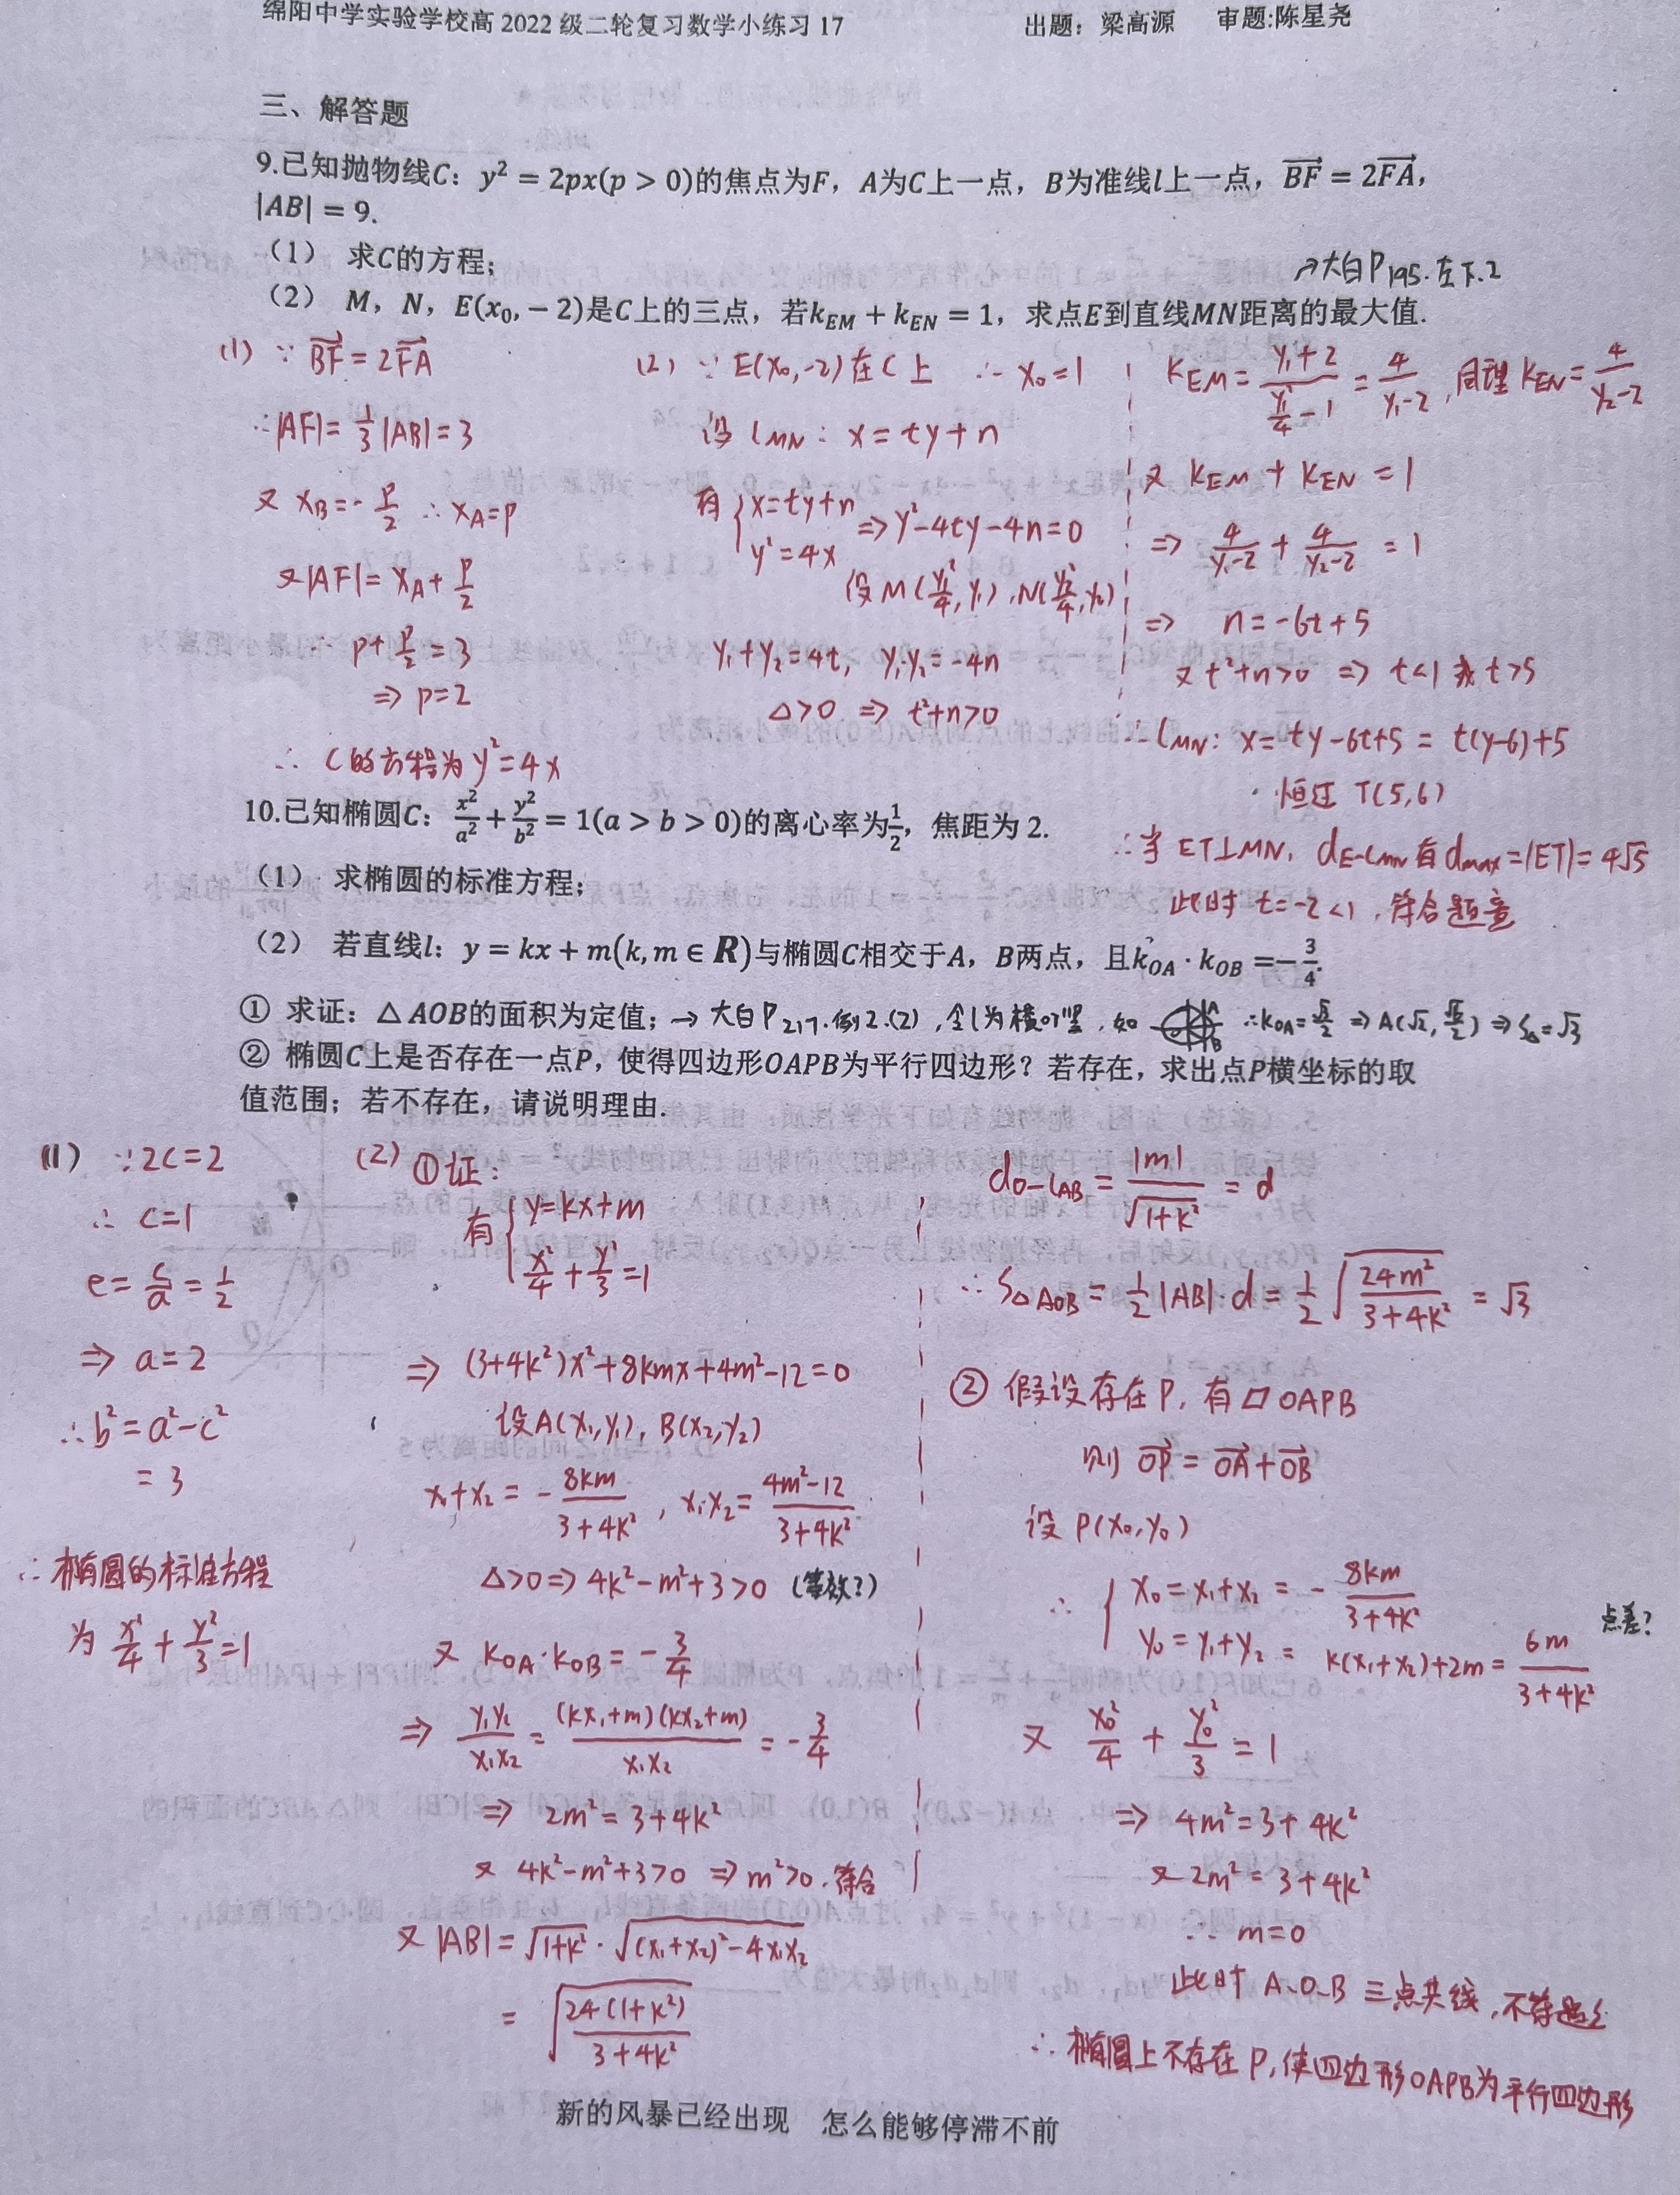 绵阳中学实验学校高 2022 级二轮复习数学小练习 17 出题：梁高源 审题:陈星尧
三、解答题
9.已知抛物线C：y² = 2px(p > 0)的焦点为F，A为C上一点，B为准线l上一点，\overrightarrow{BF} = 2\overrightarrow{FA}，
|AB| = 9.
（1） 求C的方程；
↗大白P195.左下.2
（2） M，N，E(x₀, − 2)是C上的三点，若k_{EM} + k_{EN} = 1，求点E到直线MN距离的最大值.
(1) ∵ \overrightarrow{BF} = 2\overrightarrow{FA}
∴|AF|= 1/3 |AB|= 3
又 x_B=- p/2 ∴ x_A=p
又|AF|= x_A+ p/2
∴ p+ p/2 = 3
⇒ p=2
∴ C的方程为y²=4x
(2) ∵ E(x₀,-2)在C上 ∴ x₀=1
设 l_{MN}: x=ty+n
有 { x=ty+n
y²=4x ⇒ y²-4ty-4n=0
设M(y₁²/4, y₁), N(y₂²/4, y₂)
y₁+y₂=4t, y₁·y₂=-4n
Δ>0 ⇒ t²+n>0
k_{EM}= (y₁+2)/(y₁²/4 -1) = 4/(y₁-2), 同理 k_{EN}= 4/(y₂-2)
又 k_{EM}+k_{EN}=1
⇒ 4/(y₁-2) + 4/(y₂-2) = 1
⇒ n=-6t+5
又 t²+n>0 ⇒ t<1 或 t>5
∴ l_{MN}: x=ty-6t+5 = t(y-6)+5
恒过 T(5,6)
∴当 ET⊥MN, d_{E-l_{MN}}有 d_{max}=|ET|=4√5
此时 t=-2<1, 符合题意
10.已知椭圆C：x²/a² + y²/b² = 1(a > b > 0)的离心率为1/2，焦距为 2.
（1） 求椭圆的标准方程；
（2） 若直线l：y = kx + m(k, m ∈ R)与椭圆C相交于A，B两点，且k_{OA} · k_{OB} =− 3/4.
① 求证：△ AOB的面积为定值；→大白P217.例2.(2),令l为横or竖.如 A B ∴k_{OA}= √3/2 ⇒ A(√2, √6/2) ⇒ S_Δ=√3
② 椭圆C上是否存在一点P，使得四边形OAPB为平行四边形？若存在，求出点P横坐标的取
值范围；若不存在，请说明理由.
(1) ∵2c=2
∴ c=1
e= c/a = 1/2
⇒ a=2
∴b²=a²-c²
=3
∴椭圆的标准方程
为 x²/4 + y²/3 =1
(2) ①证:
有 { y=kx+m
x²/4 + y²/3 =1
⇒ (3+4k²)x²+8kmx+4m²-12=0
设A(x₁,y₁), B(x₂,y₂)
x₁+x₂= - 8km/(3+4k²), x₁·x₂= (4m²-12)/(3+4k²)
Δ>0⇒ 4k²-m²+3>0 (等效?)
又 k_{OA}·k_{OB}= - 3/4
⇒ y₁y₂/x₁x₂ = (kx₁+m)(kx₂+m)/x₁x₂ = - 3/4
⇒ 2m²=3+4k²
又 4k²-m²+3>0 ⇒m²>0.符合
又|AB|=√(1+k²) · √((x₁+x₂)²-4x₁x₂)
= √(24(1+k²)/(3+4k²))
d_{O-l_{AB}}= |m|/√(1+k²) = d
∴S_{ΔAOB}= 1/2 |AB|·d = 1/2 √(24m²/(3+4k²)) = √3
② 假设存在P, 有▱OAPB
则 \overrightarrow{OP}=\overrightarrow{OA}+\overrightarrow{OB}
设 P(x₀,y₀)
∴ { x₀=x₁+x₂ = - 8km/(3+4k²)
y₀=y₁+y₂= k(x₁+x₂)+2m= 6m/(3+4k²) 点差?
又 x₀²/4 + y₀²/3 = 1
⇒ 4m²=3+4k²
又 2m²=3+4k²
∴ m=0
此时 A.O.B 三点共线,不符题意
∴ 椭圆上不存在P,使四边形OAPB为平行四边形
新的风暴已经出现 怎么能够停滞不前